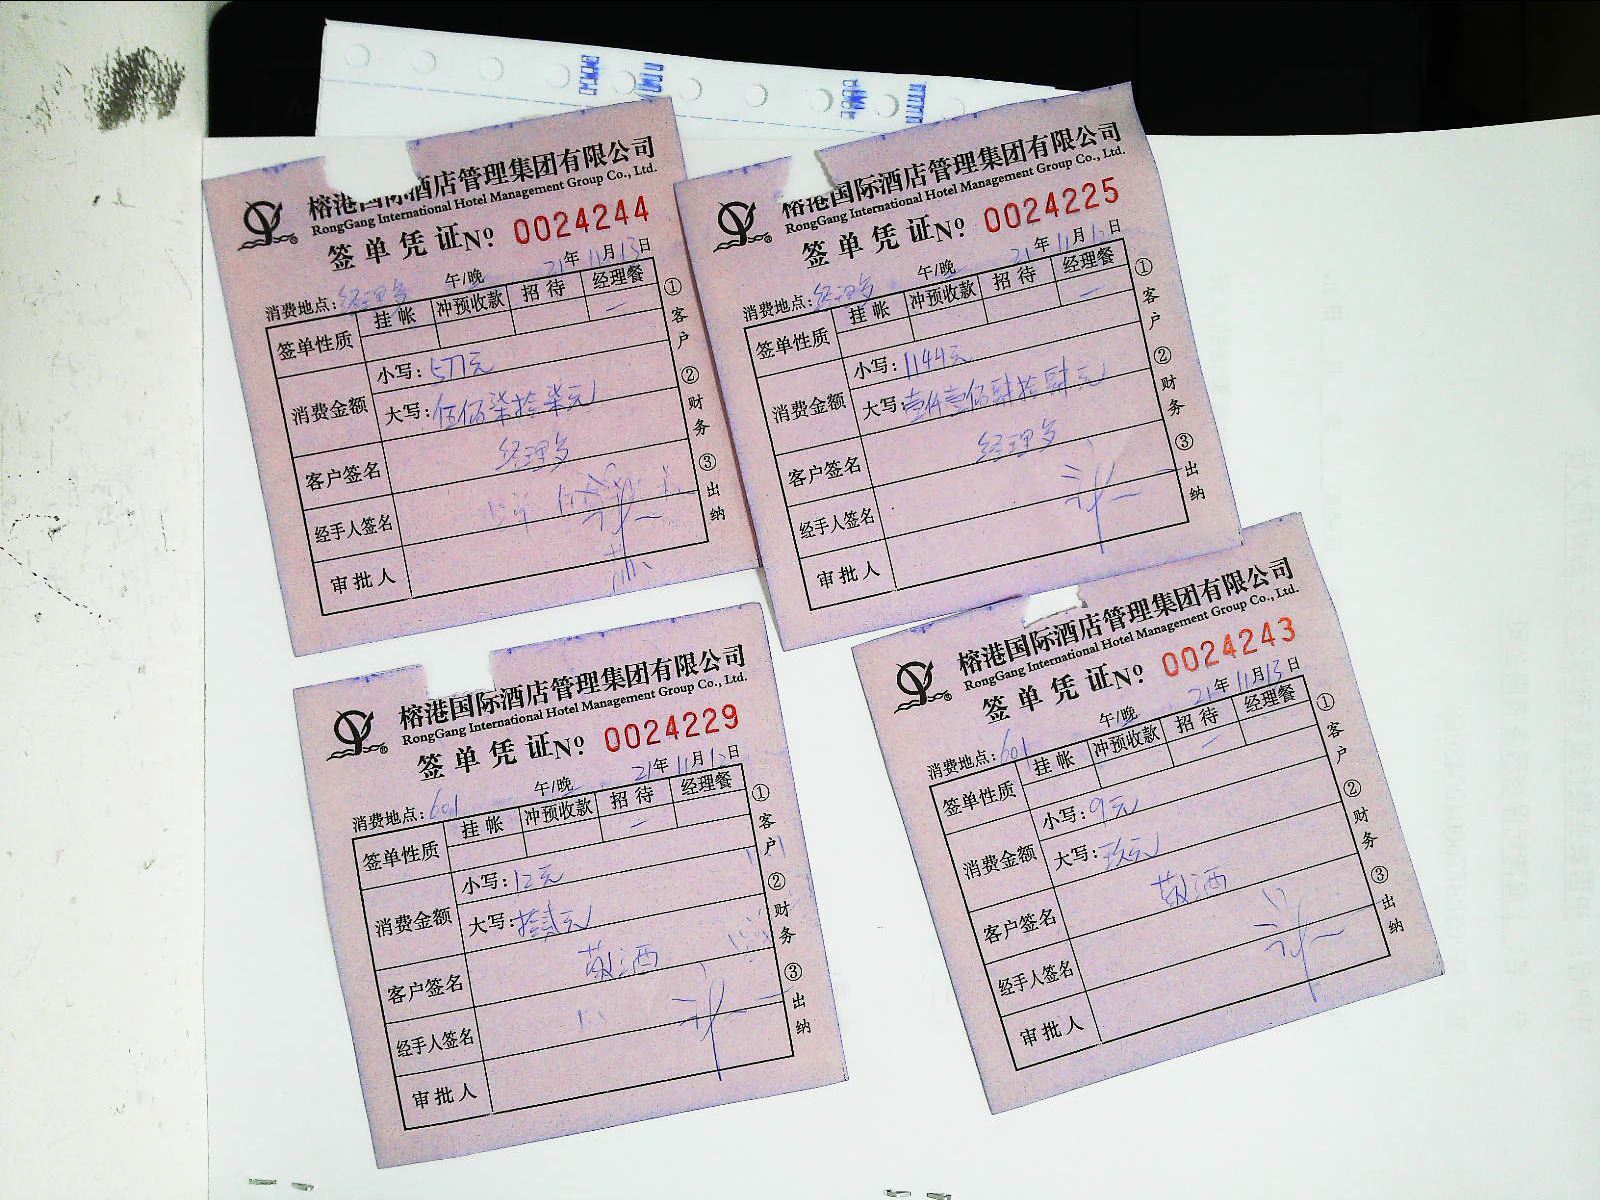 榕港国际酒店管理集团有限公司
RongGang International Hotel Management Group Co., Ltd.
签单凭证№ 0024244
午/晚 21年11月13日
消费地点:经理餐
签单性质 挂帐 冲预收款 招待 经理餐
消费金额 小写:577元
大写:伍佰柒拾柒元
客户签名 经理餐
经手人签名
审批人
①客户 ②财务 ③出纳
榕港国际酒店管理集团有限公司
RongGang International Hotel Management Group Co., Ltd.
签单凭证№ 0024225
午/晚 21年11月12日
消费地点:经理餐
签单性质 挂帐 冲预收款 招待 经理餐
消费金额 小写:1144元
大写:壹仟壹佰肆拾肆元
客户签名 经理餐
经手人签名
审批人
①客户 ②财务 ③出纳
榕港国际酒店管理集团有限公司
RongGang International Hotel Management Group Co., Ltd.
签单凭证№ 0024229
午/晚 21年11月12日
消费地点:601
签单性质 挂帐 冲预收款 招待 经理餐
消费金额 小写:12元
大写:拾贰元
客户签名 敬酒
经手人签名
审批人
①客户 ②财务 ③出纳
榕港国际酒店管理集团有限公司
RongGang International Hotel Management Group Co., Ltd.
签单凭证№ 0024243
午/晚 21年11月13日
消费地点:601
签单性质 挂帐 冲预收款 招待 经理餐
消费金额 小写:9元
大写:玖元
客户签名 敬酒
经手人签名
审批人
①客户 ②财务 ③出纳